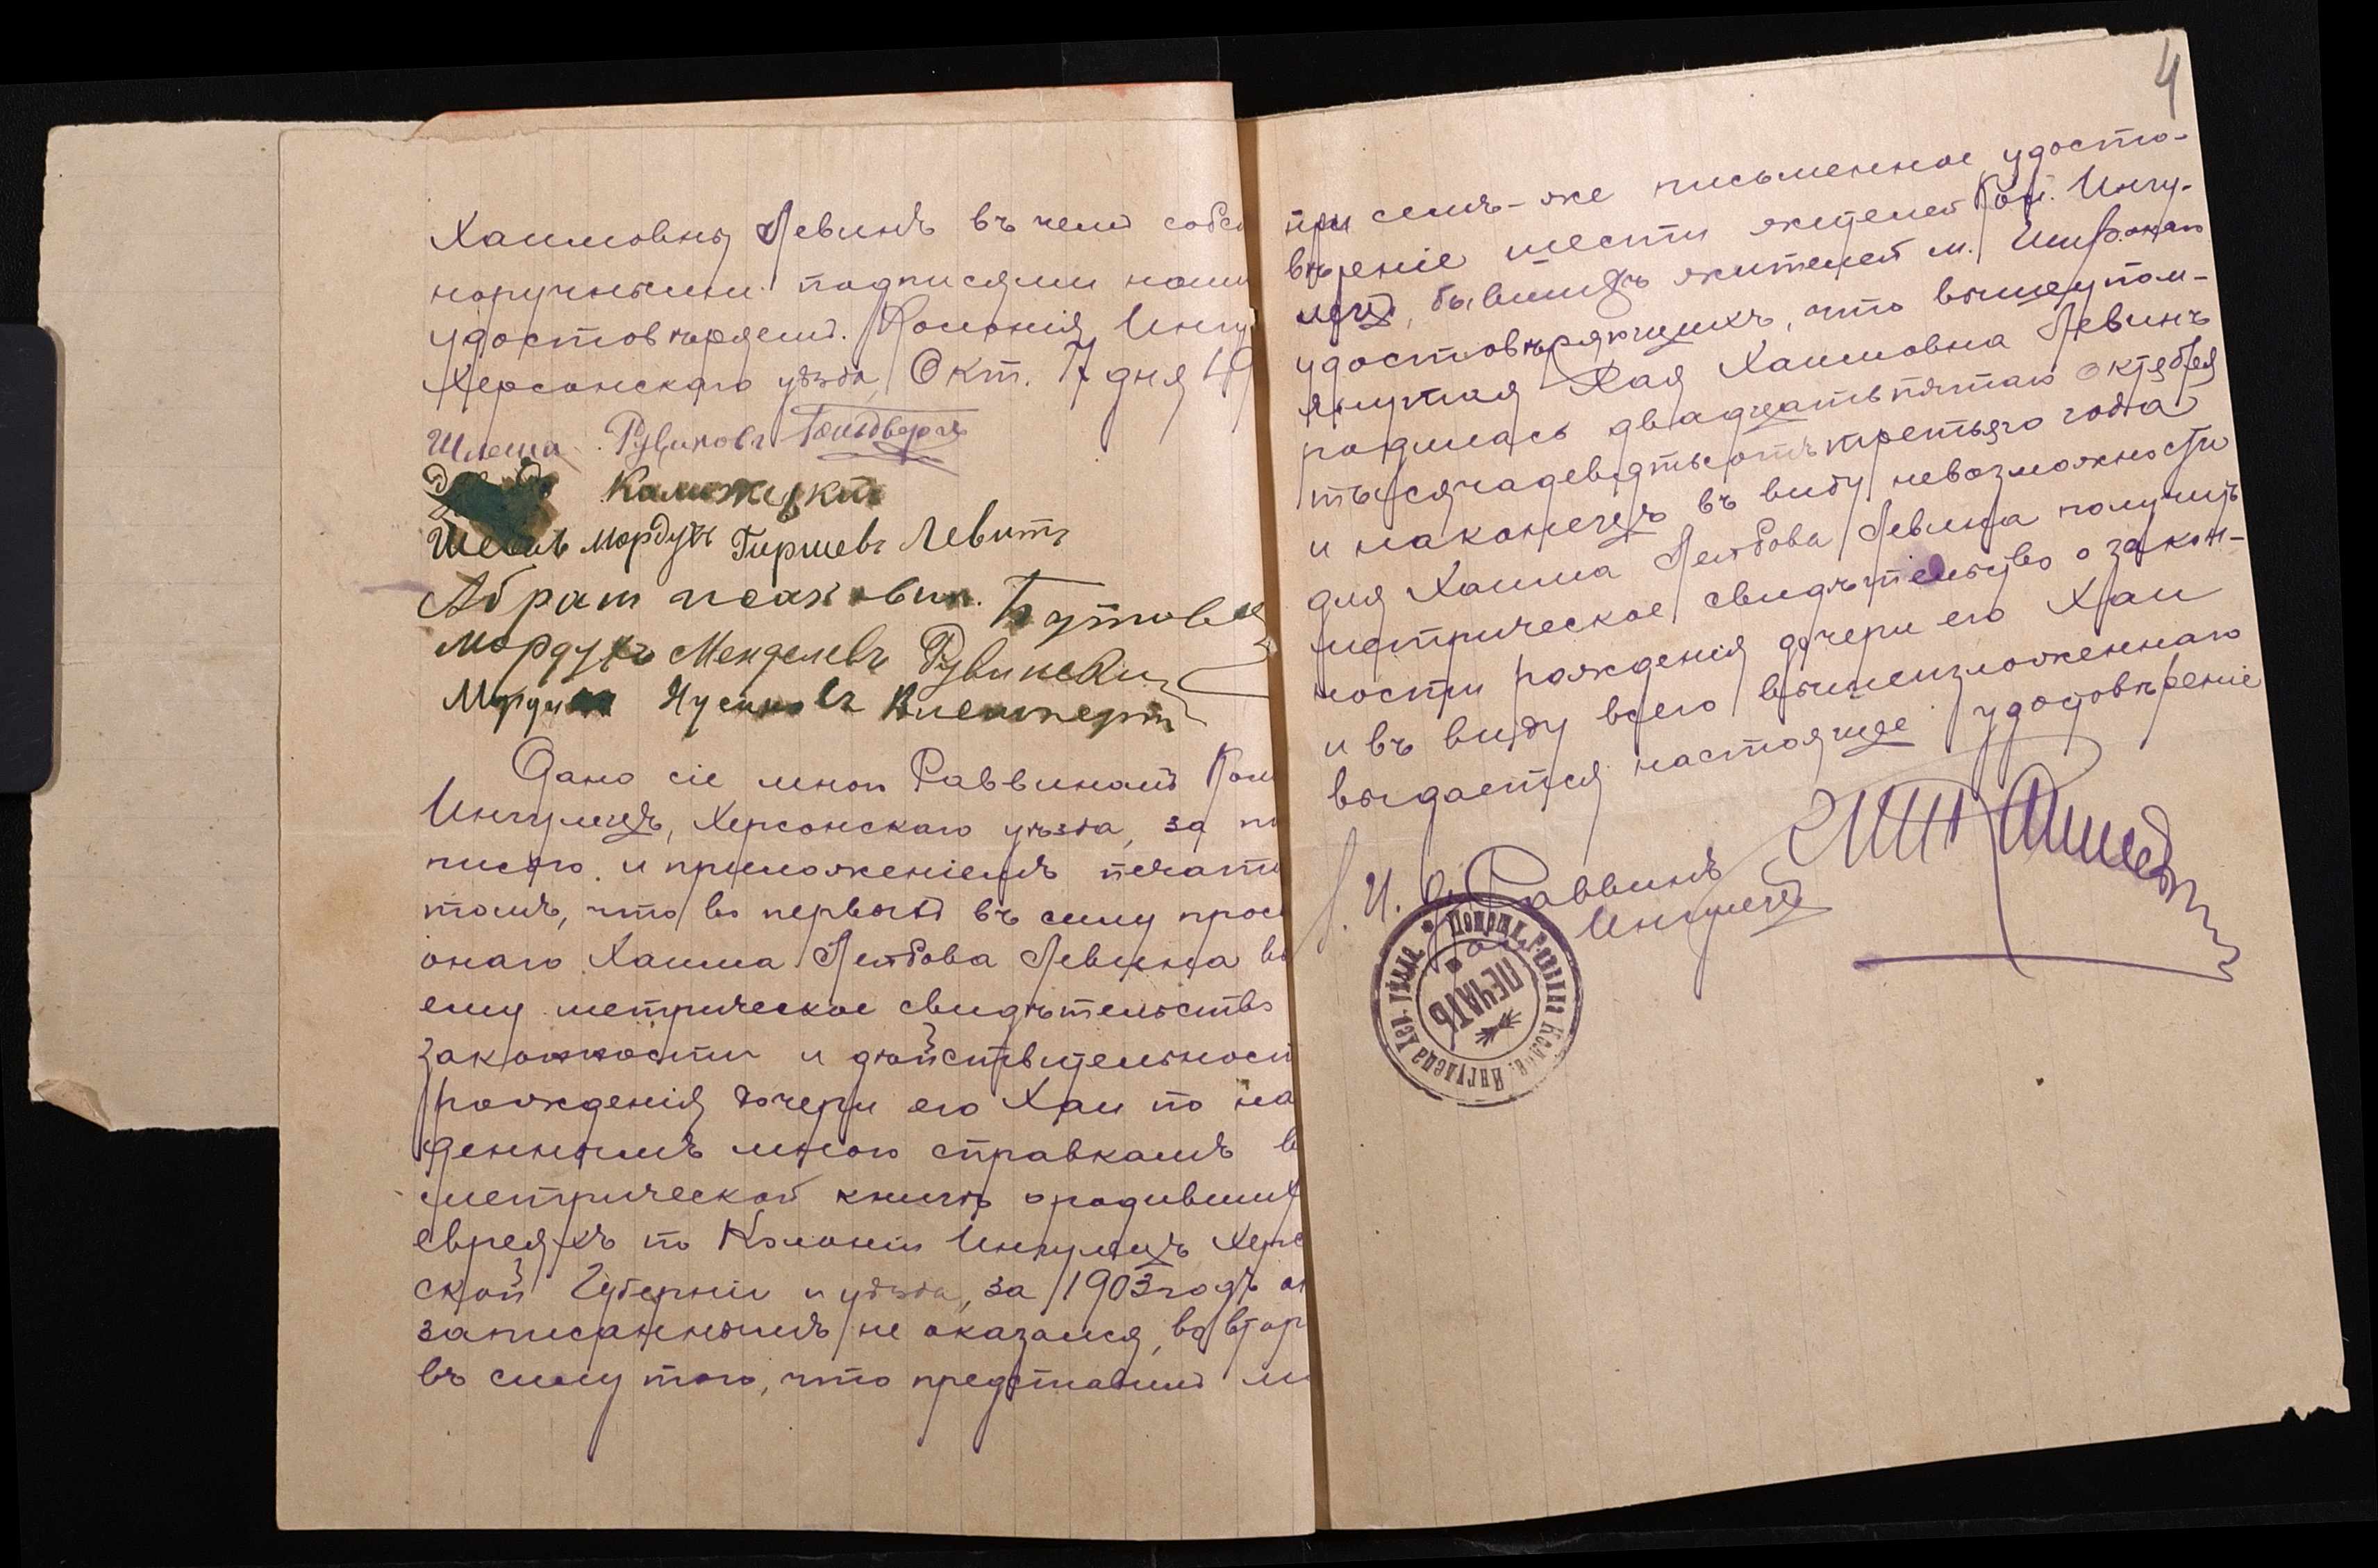 Хаимовны Левинъ въ чемъ собст
норучными подписями наши
удостовѣряемъ. Колонія Ингу
Херсонскаго уѣзда, Окт. 7 дня 19
Шлема Рувиновъ Гольдбергъ
Каминскій
Мордухъ Гиршевъ Левитъ
Абрам Исаковичъ
Мордухъ Менделевъ Рувинскій
Дано сіе мною Раввиномъ Кол
Ингулецъ, Херсонскаго уѣзда, за по
писью и приложеніемъ печати
томъ, что во первыхъ въ силу прош
онаго Хаима Лейбова Левина вы
ему метрическое свидѣтельство
законности и дѣйствительност
рожденія дочери его Хаи по на
деннымъ мною справкамъ въ
метрической книгѣ о родивших
евреяхъ по Колоніи Ингулецъ Херсо
ской Губерніи и уѣзда, за 1903 годъ
записаннымъ не оказался, во втор
въ силу того, что представилъ м
4
при семъ-же письменное удосто-
вѣреніе шести жителей Кол. Ингу-
леца, бывшихъ жителей м.
удостовѣряющихъ, что вышеупом-
янутая Хая Хаимовна Левинъ
родилась двадцать пятаго Октября
тысячадевятьсотъ третьяго года
и наконецъ въ виду невозможности
для Хаима Лейбова Левина получить
метрическое свидѣтельство о закон-
ности рожденія дочери его Хаи
и въ виду всего вышеизложеннаго
выдается настоящее удостовѣреніе
И. О. Раввинъ
Ингулецъ
Помощн. Раввина Колон. Ингулеца Хер. губ.
ПЕЧАТЬ